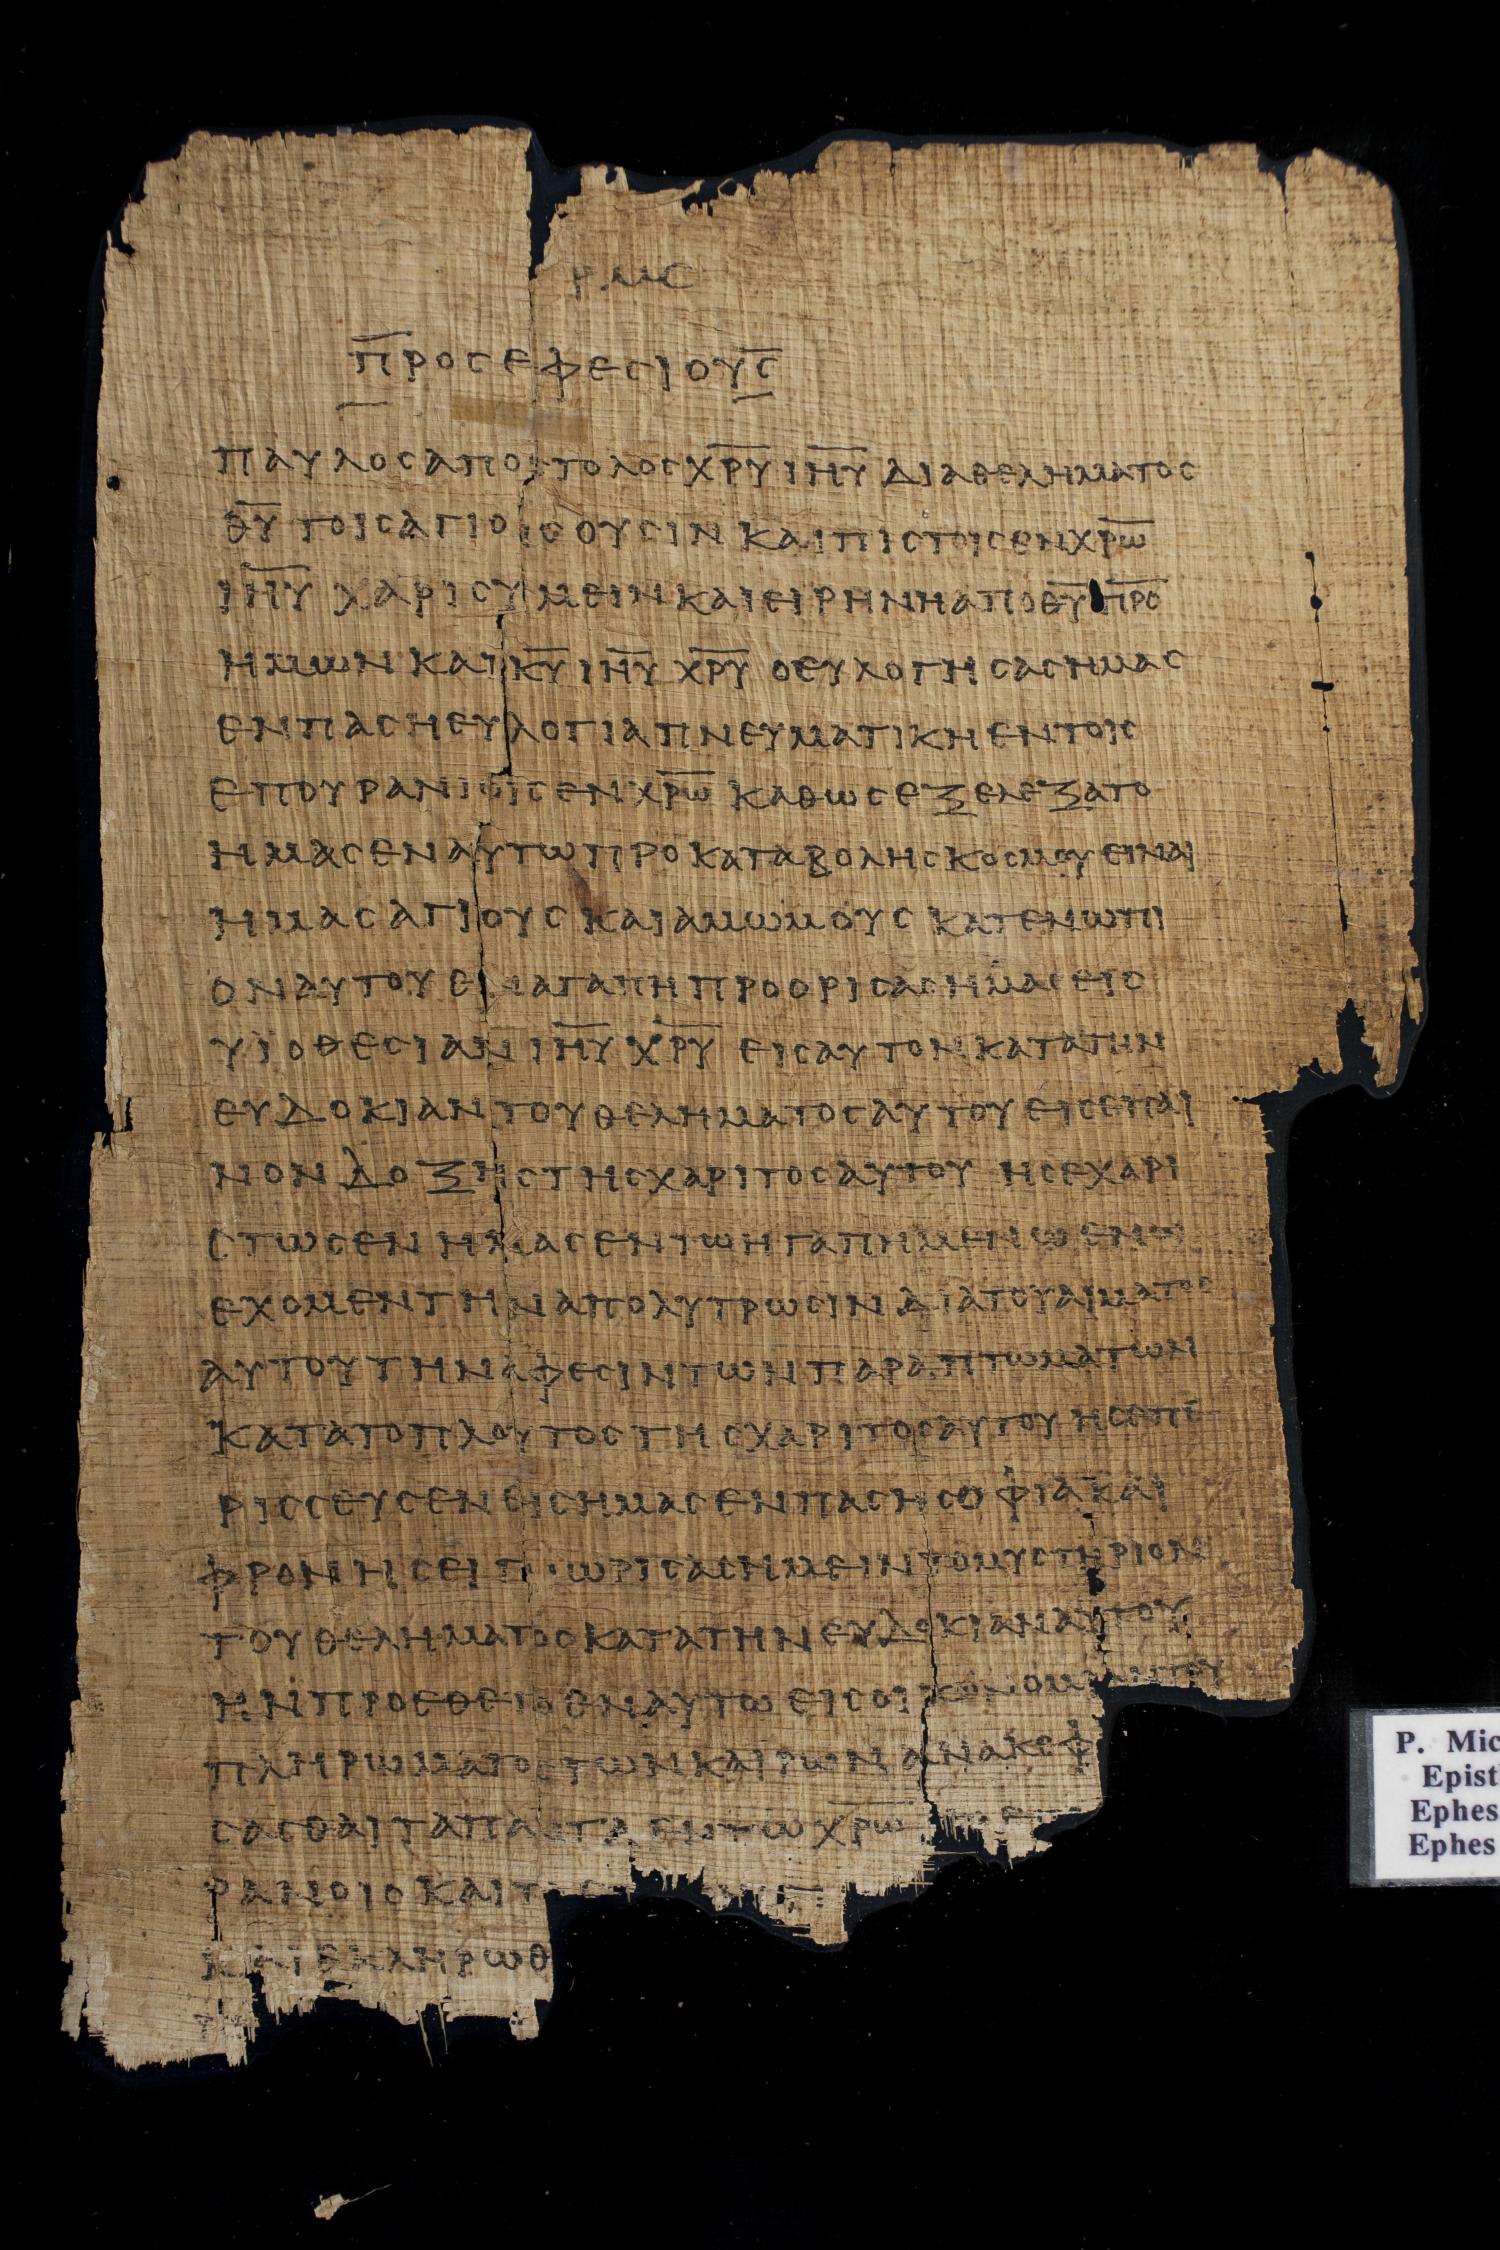 ρμϛ
π̅ροσεφεσιουσ̅
παυλοσαποστολοσχ̅ρ̅υ̅ ι̅η̅υ̅ διαθεληματοσ
θ̅υ̅ τοισαγιοισουσιν καιπιστοισενχ̅ρ̅ω̅
ι̅η̅υ̅ χαρισυμεινκαιειρηνηαποθ̅υ̅ π̅ρ̅ο̅
ημωνκαι κ̅υ̅ ι̅η̅υ̅ χ̅ρ̅υ̅ οευλογησασημασ
ενπασηευλογιαπνευματικηεντοισ
επουρανιοισενχ̅ρ̅ω̅ καθωσεξελεξατο
ημασεναυτωπροκαταβολησκοσμουειναι
ημασαγιουσκαιαμωμουσκατενωπι
οναυτουεναγαπηπροορισασημασεισ
υϊοθεσιαν ι̅η̅υ̅ χ̅ρ̅υ̅ εισαυτονκατατην
ευδοκιαντουθεληματοσαυτουεισεπαι
νονδοξηστησχαριτοσαυτου ησεχαρι
στωσεν ημασεντωηγαπημενωενω
εχομεντηναπολυτρωσινδιατουαιματοσ
αυτουτηναφεσιντωνπαραπτωματων
κατατοπλουτοστησχαριτοσαυτουησεπε
ρισσευσενεισημασενπασησοφιακαι
φρονησει ωρισασημειντομυστηριον
τουθεληματοσκατατηνευδοκιαναυτου
ηνπροεθετοεναυτωεισοικονομιαντου
πληρωματοστωνκαιρωνανακεφ
σασθαιταπανταεντωχ̅ρ̅ω̅
ρανοισκαιτ
κ εκληρωθ